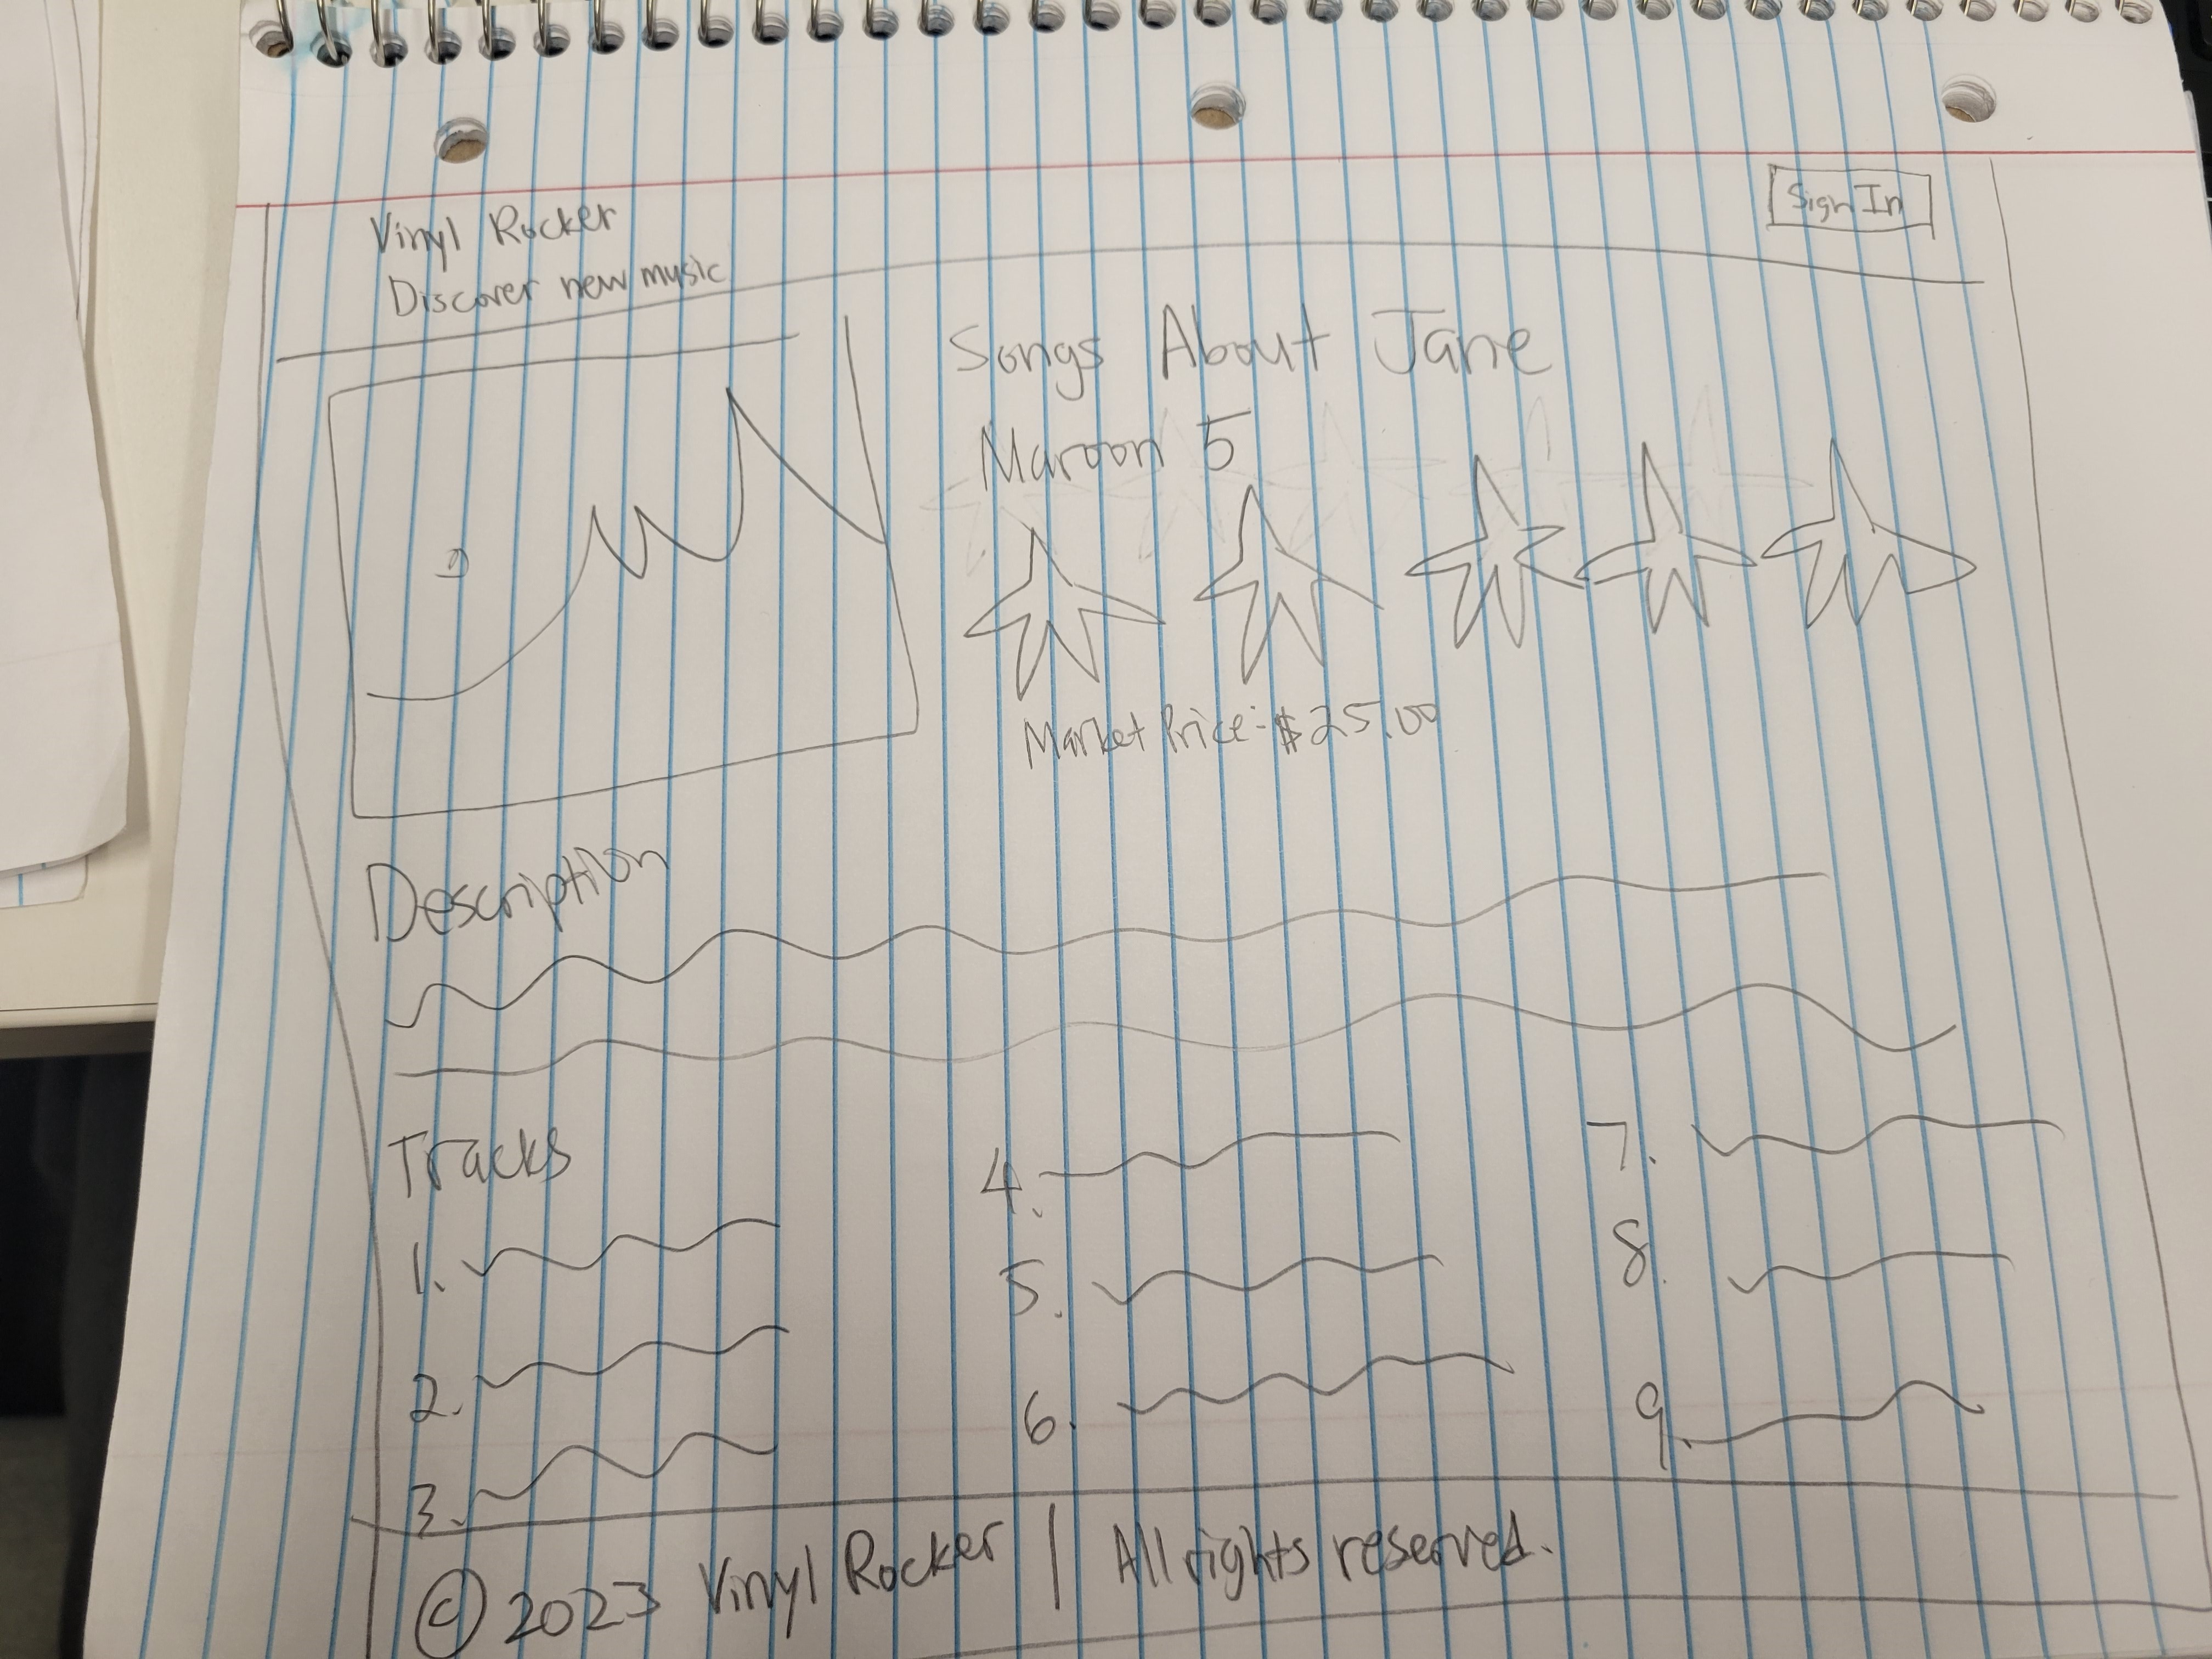 Vinyl Rocker
Sign In
Discover new music
Songs About Jane
Maroon 5
Market Price: $25.00
Description
Tracks
1.
2.
3.
4.
5.
6.
7.
8.
9.
© 2023 Vinyl Rocker | All rights reserved.